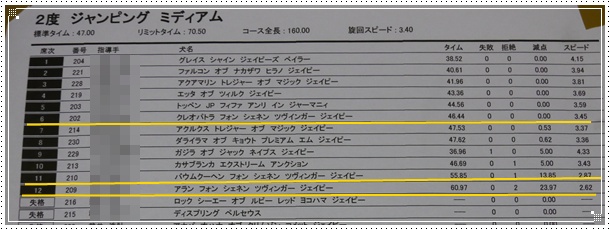 2度 ジャンピング ミディアム
標準タイム：47.00 リミットタイム：70.50 コース全長：160.00 旋回スピード：3.40
席次 番号 指導手 犬名 タイム 失敗 拒絶 減点 スピード
1 204 グレイス シャイン ジェイビーズ ベイラー 38.52 0 0 0.00 4.15
2 221 ファルコン オブ ナカザワ ヒラノ ジェイビー 40.61 0 0 0.00 3.94
3 228 アクアマリン トレジャー オブ マジック ジェイビー 41.96 0 0 0.00 3.81
4 219 エッタ オブ ツィルク ジェイビー 43.36 0 0 0.00 3.69
5 203 トッペン JP フィファ アンリ イン ジャーマニィ 44.56 0 0 0.00 3.59
6 202 クレオパトラ フォン シェネン ツヴィンガー ジェイビー 46.44 0 0 0.00 3.45
7 214 アクルクス トレジャー オブ マジック ジェイビー 47.53 0 0 0.53 3.37
8 230 ダライラマ オブ キョウト プレミアム エム ジェイビー 47.62 0 0 0.62 3.36
9 229 ガジラ オブ ジャック ネイブス ジェイビー 36.96 1 0 5.00 4.33
10 213 カサブランカ エクストリーム アンクション 46.69 0 1 5.00 3.43
11 210 バウムクーヘン フォン シェネン ツヴィンガー ジェイビー 55.85 0 1 13.85 2.87
12 209 アラン フォン シェネン ツヴィンガー ジェイビー 60.97 0 2 23.97 2.62
失格 216 ロック シーエー オブ ルビー レッド ヨコハマ ジェイビー 0 0 0.00
失格 215 ディスプリング ペルセウス 0 0 0.00